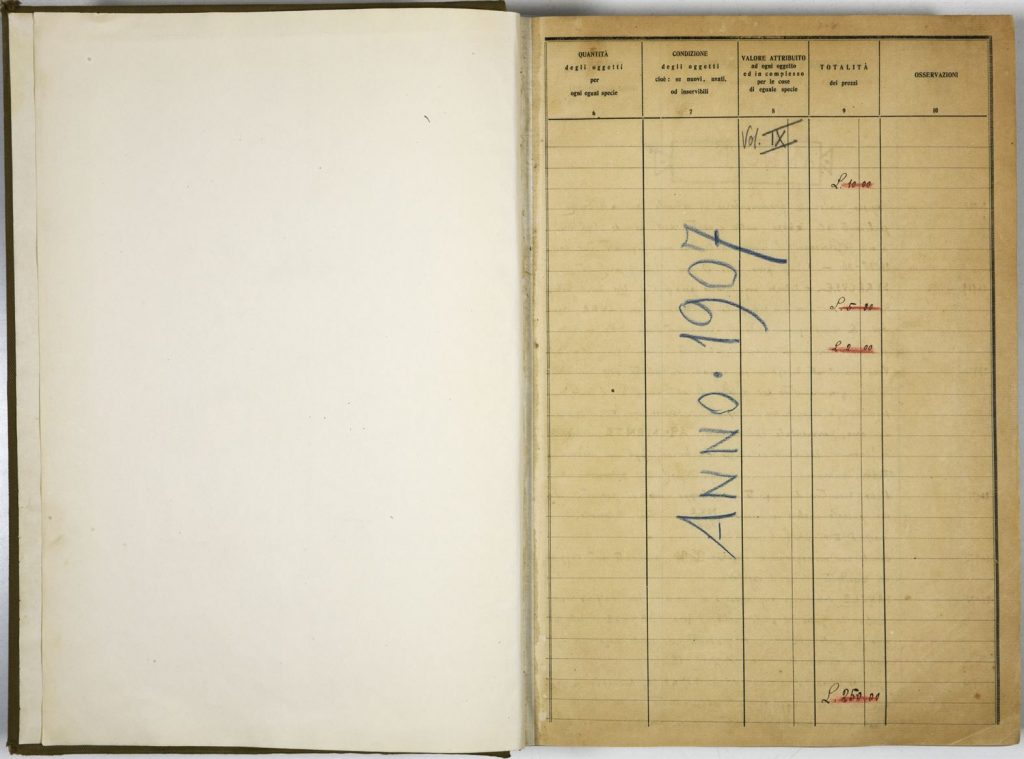 QUANTITÀ
degli oggetti
per
ogni egual specie
6
CONDIZIONE
degli oggetti
cioè: se nuovi, usati,
od inservibili
7
VALORE ATTRIBUITO
ad ogni oggetto
ed in complesso
per le cose
di eguale specie
8
TOTALITÀ
dei prezzi
9
OSSERVAZIONI
10
Vol. IX
L. 10 00
L. 5
L. 2 00
ANNO. 1907
L. 250,00